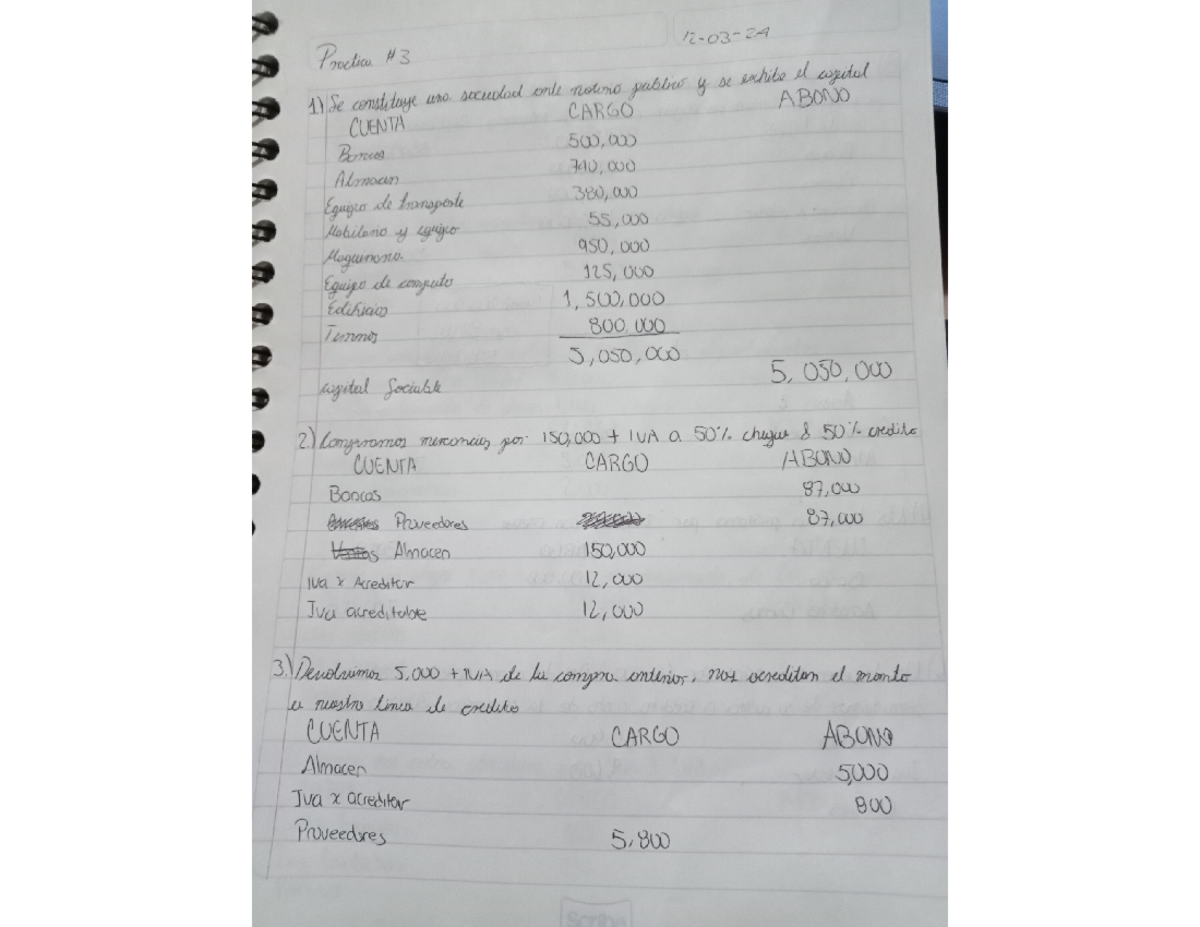 Practica #3
12-03-24
1.) Se constituye una sociedad ante notario publico y se exhibe el capital
CUENTA CARGO ABONO
Bancos 500,000
Almacen 740,000
Equipo de transporte 380,000
Mobilario y equipo 55,000
Maquinaria 950,000
Equipo de computo 125,000
Edificios 1,500,000
Terrenos 800,000
5,050,000
capital Sociable 5,050,000
2.) Compramos mercancias por 150,000 + IVA a 50% cheque & 50% credito
CUENTA CARGO ABONO
Bancos 87,000
Proveedores 87,000
Ventas Almacen 150,000
Iva x Acreditar 12,000
Iva acreditable 12,000
3.) Devolvimos 5,000 + IVA de la compra anterior, nos acreditan el monto
a nuestra linea de credito
CUENTA CARGO ABONO
Almacen 5,000
Iva x acreditar 800
Proveedores 5,800
Scribe